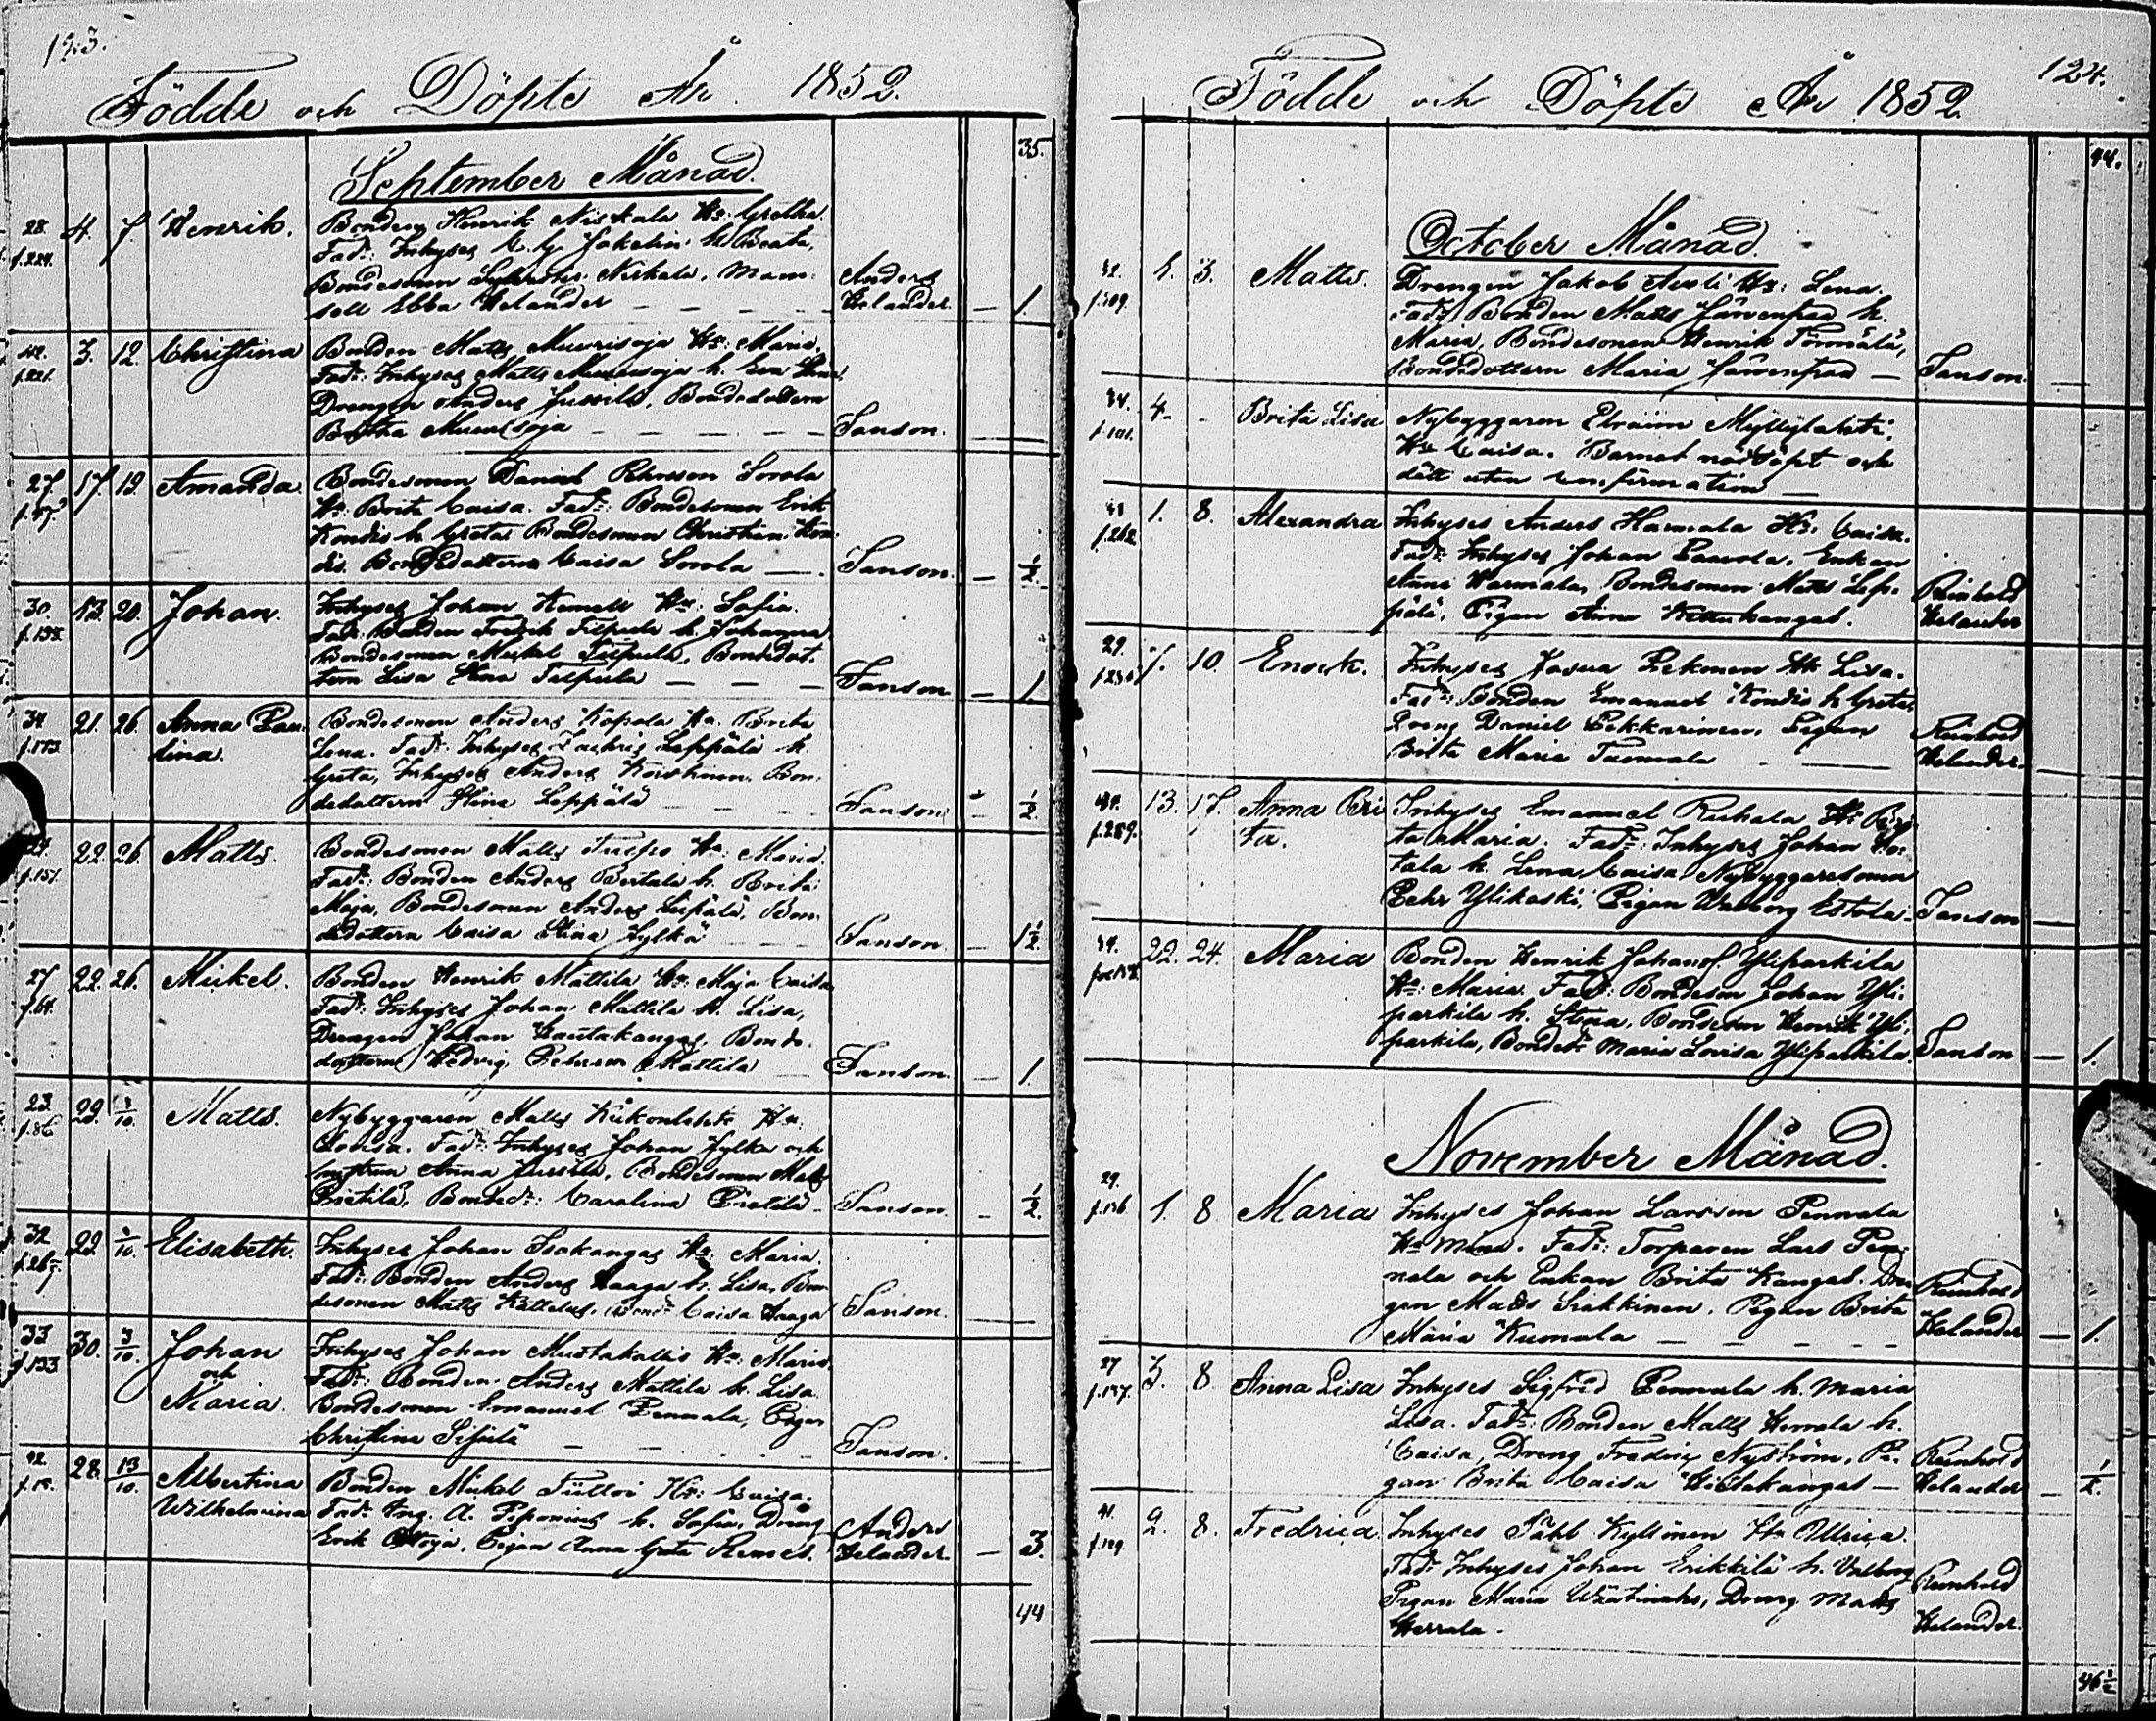 123.
Födde och Döpte År 1852.
35.
September Månad.
28. f.224. 4. 7. Henrik. Bonden Henrik Niskala Hu: Gretha
Fad: Inhyses Jakelin h. Beata,
Bondesonen Niskala, Mam-
sell Ebba Helander Anders Helander — 1.
42. f.221. 3. 12. Christina Bonden Matts Muurisoja Hu: Maria.
Fad: Inhyses Matts Muurisoja h. Eva Stina,
Drengen Anders Jussila, Bondedottern
Muurisoja Janson.
27. 17. 19. Amanda. Bondesonen Daniel Pehrsson Sorola
Hu Brita Caisa. Fad: Bondesonen Erik
Kondis h. Greta Bondesonen Christian Kon-
dis. Bondedottern Caisa Sorola Janson. — ½.
30. f.198. 13. 20. Johan. Inhyses Johan Hu: Sofia.
Fad: Bonden Fredrik Filpula h. Johanna
Bondesonen Mickel Filpula, Bondedot-
tern Lisa Stina Filpula Janson — 1.
34. f.173. 21. 26. Anna Pau-
lina. Bondesonen Anders Kopola Hu. Brita
Lena. Fad: Inhyses Zachris Leppälä h.
Greta, Inhyses Anders Koiskinen. Bon-
dedottern Stina Leppälä Janson. ½.
f.151. 22. 26. Matts. Bondesonen Matts Turpo Hu: Maria.
Fad: Bonden Anders Bertula h. Brita
Maja, Bondesonen Anders Leipälä, Bon-
dedottern Caisa Stina Jylkä Janson. — 1½.
27 f.64. 22. 26. Mickel. Bonden Henrik Mattila Hu: Maja Caisa
Fad: Inhyses Johan Mattila h. Lisa,
Drengen Johan Hautakangas, Bonde-
dottern Hedvig Mattila Janson. — 1.
23 f.86 29. 3/10. Matts. Nybyggaren Matts Kukonlehto Hu:
Lovisa. Fad: Inhyses Johan Jylkä och
hustrun Anna Jussila, Bondesonen Matts
Pietilä, Bonded: Carolina Pietilä Janson. — ½.
32 f.267 29. 3/10. Elisabeth. Inhyses Johan Isokangas Hu: Maria.
Fad: Bonden Anders Haaga h. Lisa, Bon-
desonen Matts Kattelus. Bond: Caisa Haaga Janson.
33 f.133 30. 3/10. Johan
och
Maria. Inhyses Johan Mustakallio Hu: Maria.
Fad: Bonden Anders Mattila h. Lisa
Bondesonen Emanuel Pennala, Pigan
Christina Sipilä Janson.
42. 28. 13/10. Albertina
Wilhelmina Bonden Mickel Hu: Caisa.
Fad: Ing. A. Peponius h. Sofia, Dreng
Erik Oja. Pigan Anna Greta Remes. Anders Helander — 3.
44
124.
Födde och Döpte År 1852.
44.
October Månad.
f.109. 1. 3. Matts. Drengen Jakob Hu: Lena.
Fad: Bonden Matts Järvenpää h.
Maria, Bondesonen Henrik Törmälä,
Bondedottern Maria Järvenpää Janson.
34. f.101. 4. - Brita Lisa Nybyggaren Efraim Myllylahti.
Hu Caisa. Barnet nöddöpt och
dött utan confirmation
f.262 1. 8. Alexandra Inhyses Anders Harmala Hu: Caisa.
Fad: Inhyses Johan Paavola, Enkan
Anna Harmala, Bondesonen Matts Lep-
pälä, Pigan Anna Kettukangas. Reinhold Helander
29. 7. 10. Enock. Inhyses Josua Pekonen Hu Lisa.
Fad: Bonden Emanuel Kondis h. Greta,
Dreng Daniel Pekkarinen. Pigan
Brita Maria Tuomala Reinhold Helander.
f.289. 13. 17. Anna Bri-
ta. Inhyses Emanuel Ruhala Hu Bri-
ta Maria. Fad: Inhyses Johan Ho-
tala h. Lena Caisa Nybyggaresonen
Pehr Ylikoski, Pigan Walborg Estola. Janson
34. 22. 24. Maria Bonden Henrik Johans. Yliparkila
Hu: Maria. Fad: Bondeson Johan Yli-
parkila h. Stina, Bondeson Henrik Yli-
parkila, Bonded: Maria Lovisa Yliparkila Janson — 1.
November Månad.
29. f.136. 1. 8 Maria Inhyses Johan Larsson Pennala
Hu Fad: Torparen Lars Pen-
nala och Enkan Brita Kangas. Dren-
gen Matts Siakkinen. Pigan Brita
Maria Kumala Reinhold Helander — 1.
27 f.137. 3. 8. Anna Lisa Inhyses Sigfrid Pennala h. Maria
Lisa. Fad: Bonden Matts Herrala h.
Caisa, Dreng Fredric Nyström, Pi-
gan Brita Caisa Hietakangas Reinhold Helander — ½.
41. f.129. 2. 8. Fredrica. Inhyses Pähl Kyllönen Hu Ulrica.
Fad: Inhyses Johan Erikkilä h. Valborg
Pigan Maria Wäätinaho, Dreng Matts
Herrala. Reinhold Helander.
46½